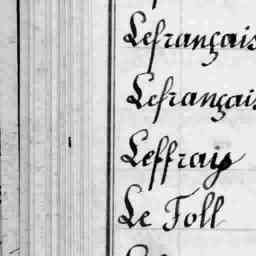 Lefrançais
Lefrançais
Leffray
Le Toll